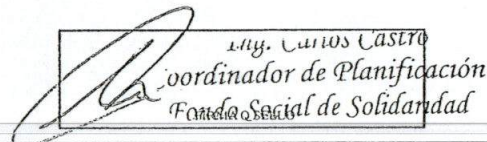 Ing. Carlos Castro
Coordinador de Planificación
Fondo Social de Solidaridad